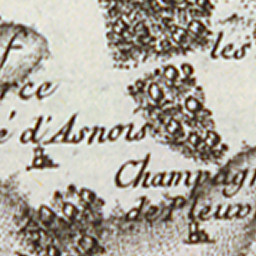 les
rce
é d'Asnois
Champagn
de Pleuv